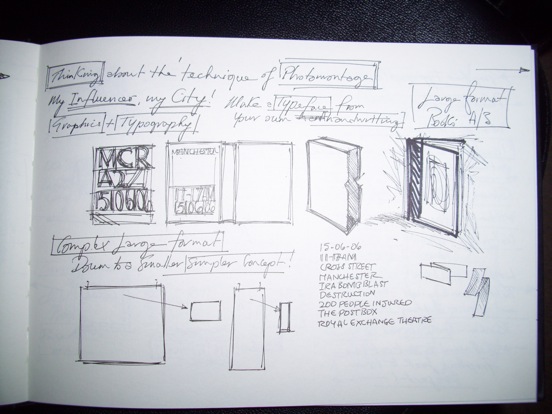 Thinking about the technique of Photomontage
My Influences, my City! Make a Typeface from
Graphics + Typography! your own handwriting
Large format
Books A/3
MCR
MANCHESTER
Complex Large format
Down to smaller simpler concept!
15-06-06
11-17AM
CROSS STREET
MANCHESTER
IRA BOMB BLAST
DESTRUCTION
200 PEOPLE INJURED
THE POSTBOX
ROYAL EXCHANGE THEATRE